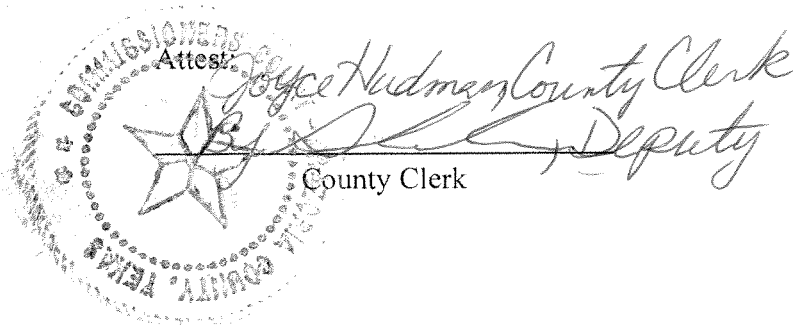 COMMISSIONERS
COUNTY, TEXAS
Attest:
Joyce Hudman, County Clerk
By , Deputy
County Clerk